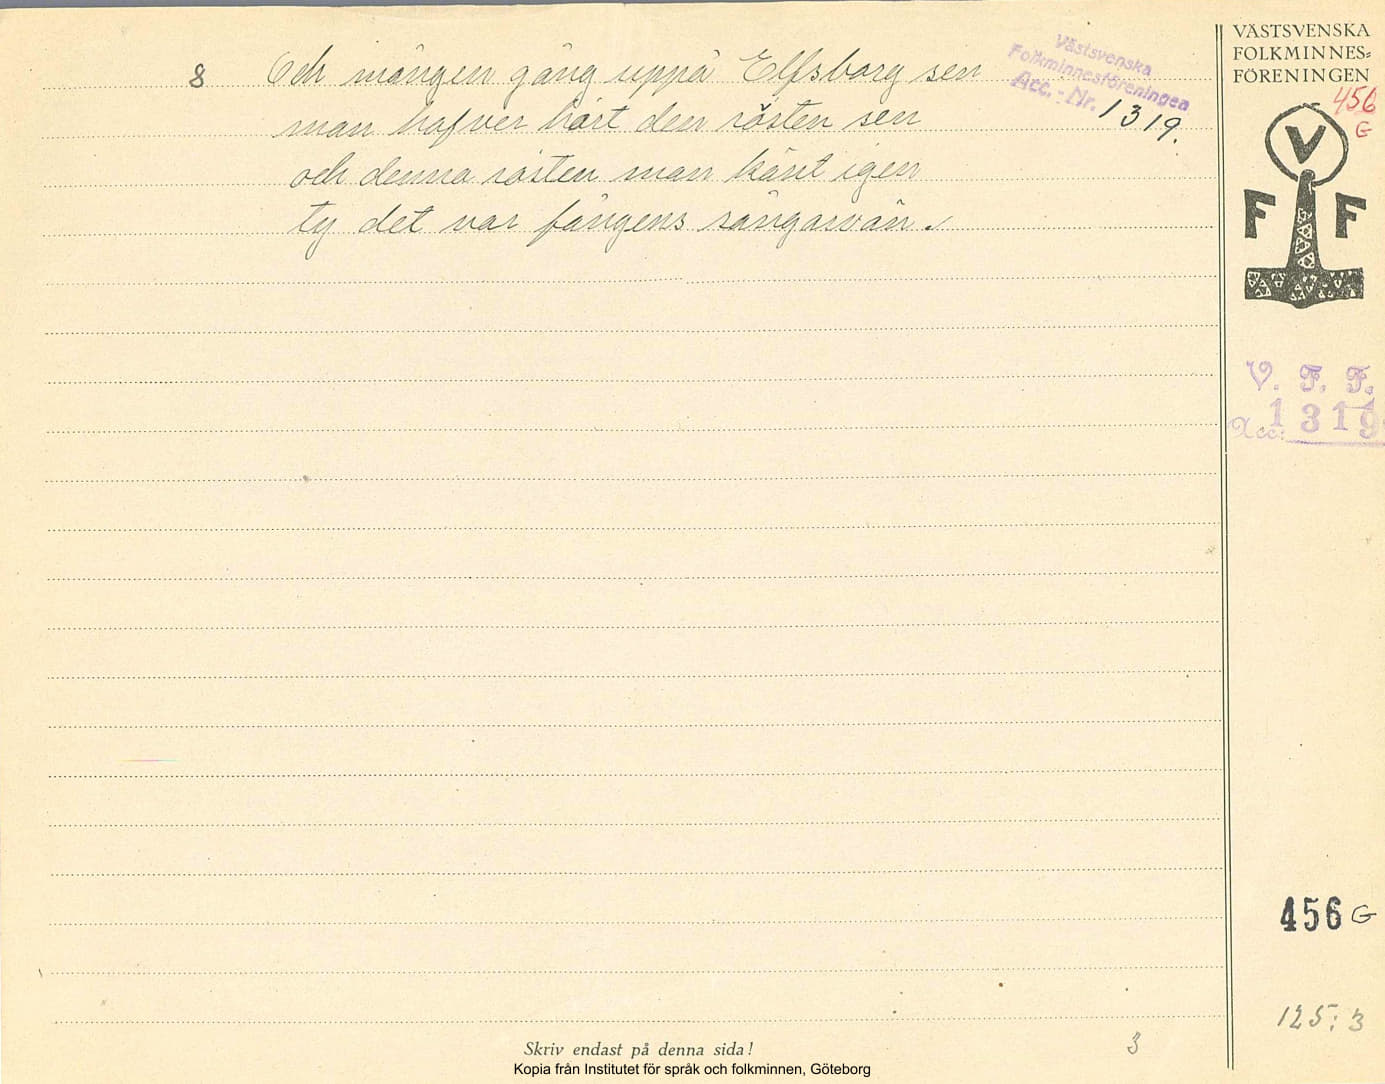 8 Och mången gång uppå Elfsborg sen
man hafver hört den rösten sen
och denna rösten man känt igen
ty det var fångens sångarvän.
Västsvenska
Folkminnesföreningen
Acc. - Nr. 1319.
VÄSTSVENSKA
FOLKMINNES=
FÖRENINGEN
456
G
V
F F
V. F. F.
Acc: 1319
456 G
125:3
3
Skriv endast på denna sida!
Kopia från Institutet för språk och folkminnen, Göteborg